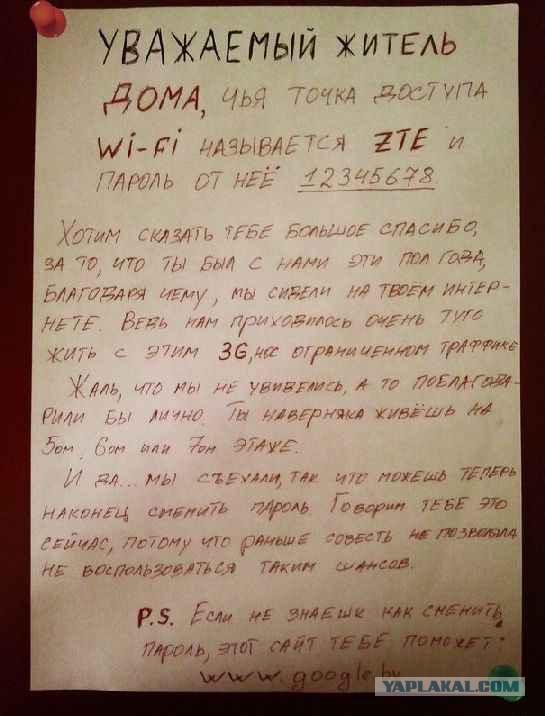 УВАЖАЕМЫЙ ЖИТЕЛЬ
ДОМА, ЧЬЯ ТОЧКА ДОСТУПА
Wi-Fi НАЗЫВАЕТСЯ ZTE И
ПАРОЛЬ ОТ НЕЁ 12345678
ХОТИМ СКАЗАТЬ ТЕБЕ БОЛЬШОЕ СПАСИБО,
ЗА ТО, ЧТО ТЫ БЫЛ С НАМИ ЭТИ ПОЛ ГОДА,
БЛАГОДАРЯ ЧЕМУ, МЫ СИДЕЛИ НА ТВОЕМ ИНТЕР-
НЕТЕ. ВЕДЬ НАМ ПРИХОДИЛОСЬ ОЧЕНЬ ТУГО
ЖИТЬ С ЭТИМ 3G, ограниченном ТРАФФИКЕ
ЖАЛЬ, ЧТО МЫ НЕ УВИДЕЛИСЬ, А ТО ПОБЛАГОДА-
РИЛИ БЫ ЛИЧНО. ТЫ НАВЕРНЯКА ЖИВЁШЬ НА
5ом, 6ом или 7ом ЭТАЖЕ.
И ДА... МЫ СЪЕХАЛИ, ТАК ЧТО МОЖЕШЬ ТЕПЕРЬ
НАКОНЕЦ СМЕНИТЬ ПАРОЛЬ. ГОВОРИМ ТЕБЕ ЭТО
СЕЙЧАС, ПОТОМУ ЧТО РАНЬШЕ СОВЕСТЬ НЕ ПОЗВОЛИЛА
НЕ ВОСПОЛЬЗОВАТЬСЯ ТАКИМ ШАНСОМ.
P.S. ЕСЛИ НЕ ЗНАЕШЬ КАК СМЕНИТЬ
ПАРОЛЬ, ЭТОТ САЙТ ТЕБЕ ПОМОЖЕТ:
www.google.by
YAPLAKAL.COM